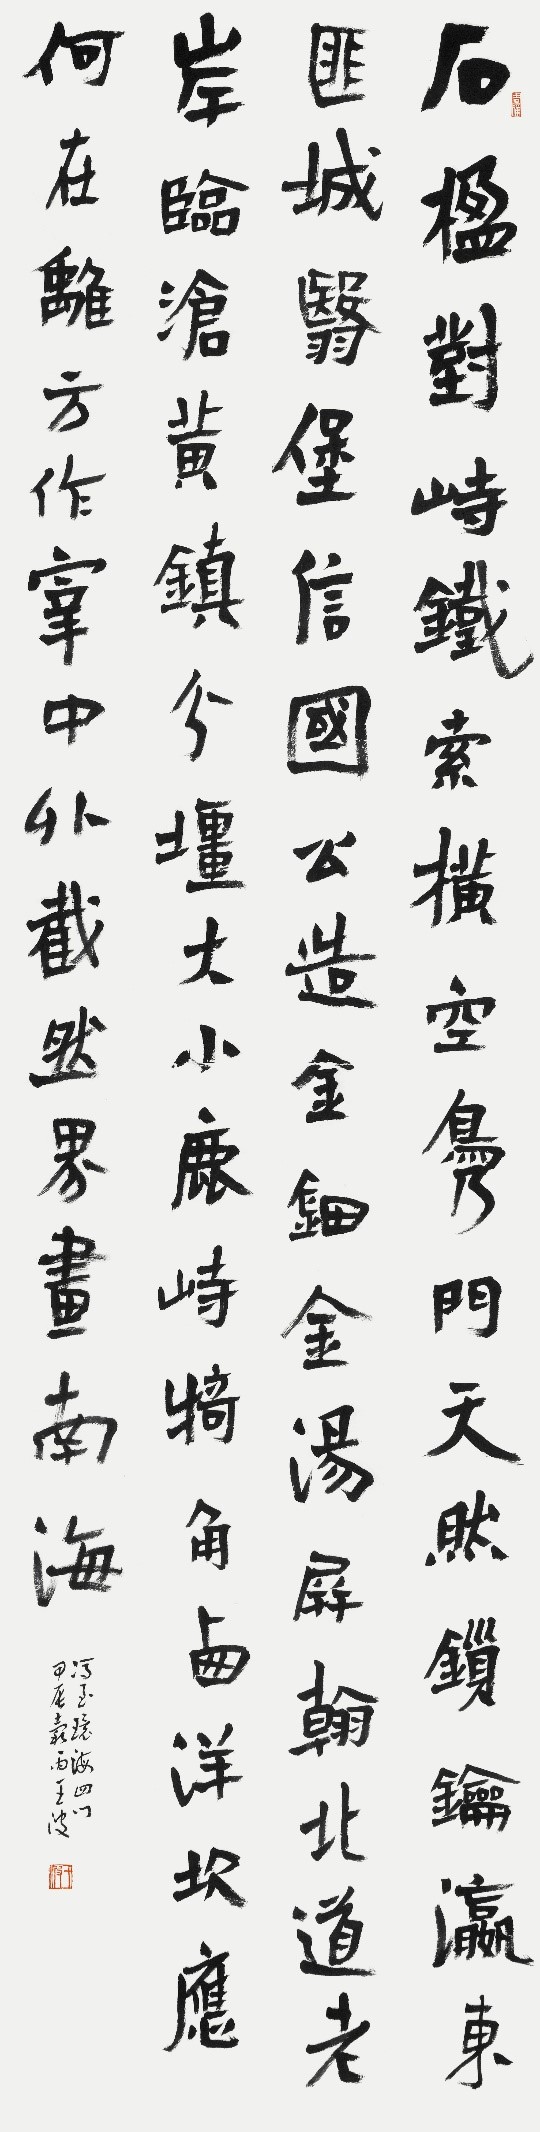 石楹對峙鐵索橫空鳧門天然鎖鑰瀛東
匪城翳堡信國公造金鈿金湯屏翰北道老
岸臨滄黃鎮分壃大小鹿峙犄角鹵洋坎應
何在離方作窜中外截然界畫南海
馮至環海四門
甲辰嘉雨王波